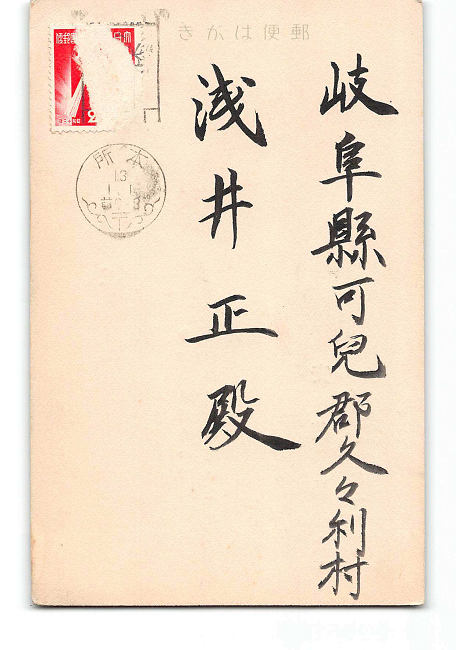 きかは便郵
岐阜縣可兒郡久々利村
浅井正殿
所本
13